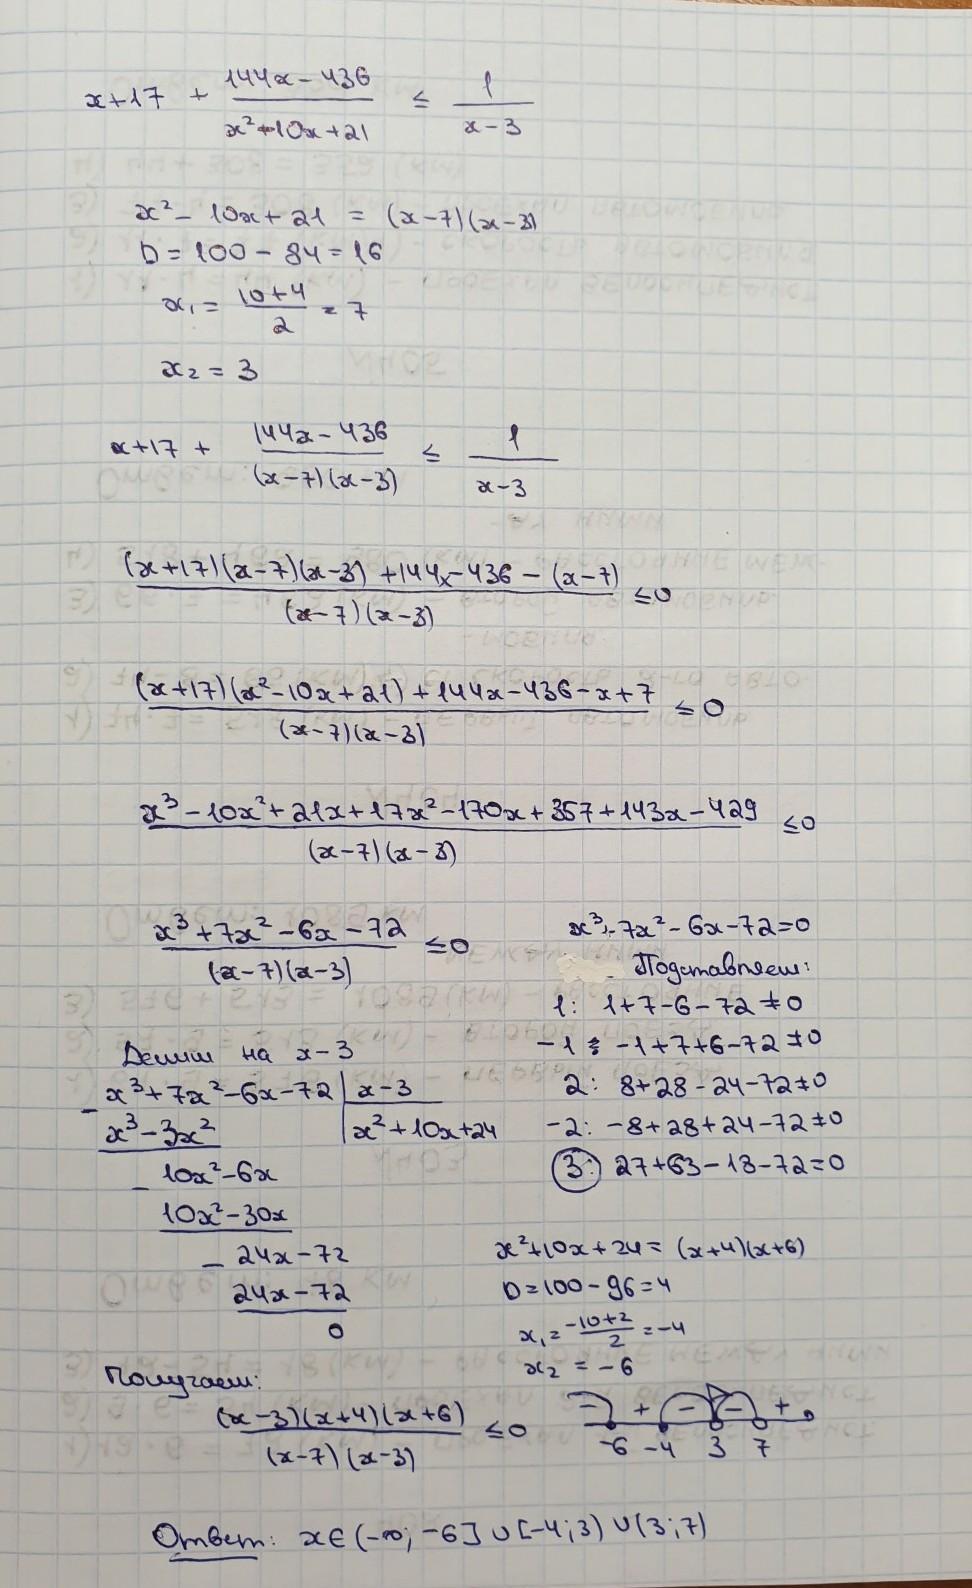 x+17 + (144x-436)/(x²-10x+21) ≤ 1/(x-3)
x² - 10x + 21 = (x-7)(x-3)
D = 100 - 84 = 16
x₁ = (10+4)/2 = 7
x₂ = 3
x+17 + (144x-436)/((x-7)(x-3)) ≤ 1/(x-3)
((x+17)(x-7)(x-3) + 144x - 436 - (x-7))/((x-7)(x-3)) ≤ 0
((x+17)(x²-10x+21) + 144x - 436 - x + 7)/((x-7)(x-3)) ≤ 0
(x³ - 10x² + 21x + 17x² - 170x + 357 + 143x - 429)/((x-7)(x-3)) ≤ 0
(x³ + 7x² - 6x - 72)/((x-7)(x-3)) ≤ 0
x³-7x²-6x-72=0
Подставляем:
1: 1+7-6-72≠0
-1: -1+7+6-72≠0
2: 8+28-24-72≠0
-2: -8+28+24-72≠0
3: 27+63-18-72=0
Делим на x-3
x³+7x²-6x-72 | x-3
x³-3x² | x²+10x+24
10x²-6x
10x²-30x
24x-72
24x-72
0
x²+10x+24 = (x+4)(x+6)
D=100-96=4
x₁=(-10+2)/2=-4
x₂ = -6
Получаем:
((x-3)(x+4)(x+6))/((x-7)(x-3)) ≤ 0
- + - - +
-6 -4 3 7
Ответ: x∈(-∞; -6]∪[-4;3)∪(3;7)